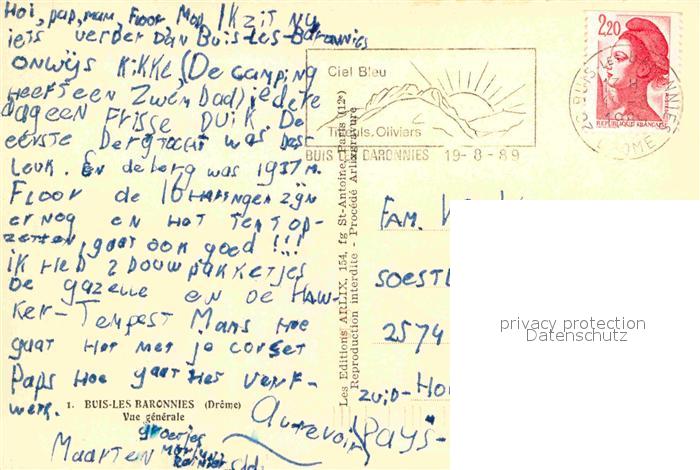 Hoi, pap, mam, Floor Mop Ik zit nu
iets verder dan Buis-Les-Baronnies
onwijs kikke (De camping
heeft een Zwembad) iedere
dag een frisse duik. De
eerste bergtocht was best
leuk. En de berg was 1937 m.
Floor de 10 Haringen zijn
er nog en het tent op-
zetten, gaat ook goed !!!
ik heb 2 bouwpakketjes
De gazelle en de Haw-
ker-Tempest Mams hoe
gaat het met je corset
Paps hoe gaat het verf-
werk.
1. BUIS-LES BARONNIES (Drôme)
Vue générale
groetjes
Maarten
Aurevoir
Les Editions ARLIX, 154, fg St-Antoine, Paris (12e)
Reproduction interdite - Procédé Arlixgravure
Ciel Bleu
Tilleuls.Oliviers
BUIS LES BARONNIES 19-8-89
2,20
REPUBLIQUE FRANÇAISE
26 BUIS-LES-BARONNIES
DROME
FAM.
SOEST
2574
ZUID-HO
PAYS-
privacy protection
Datenschutz